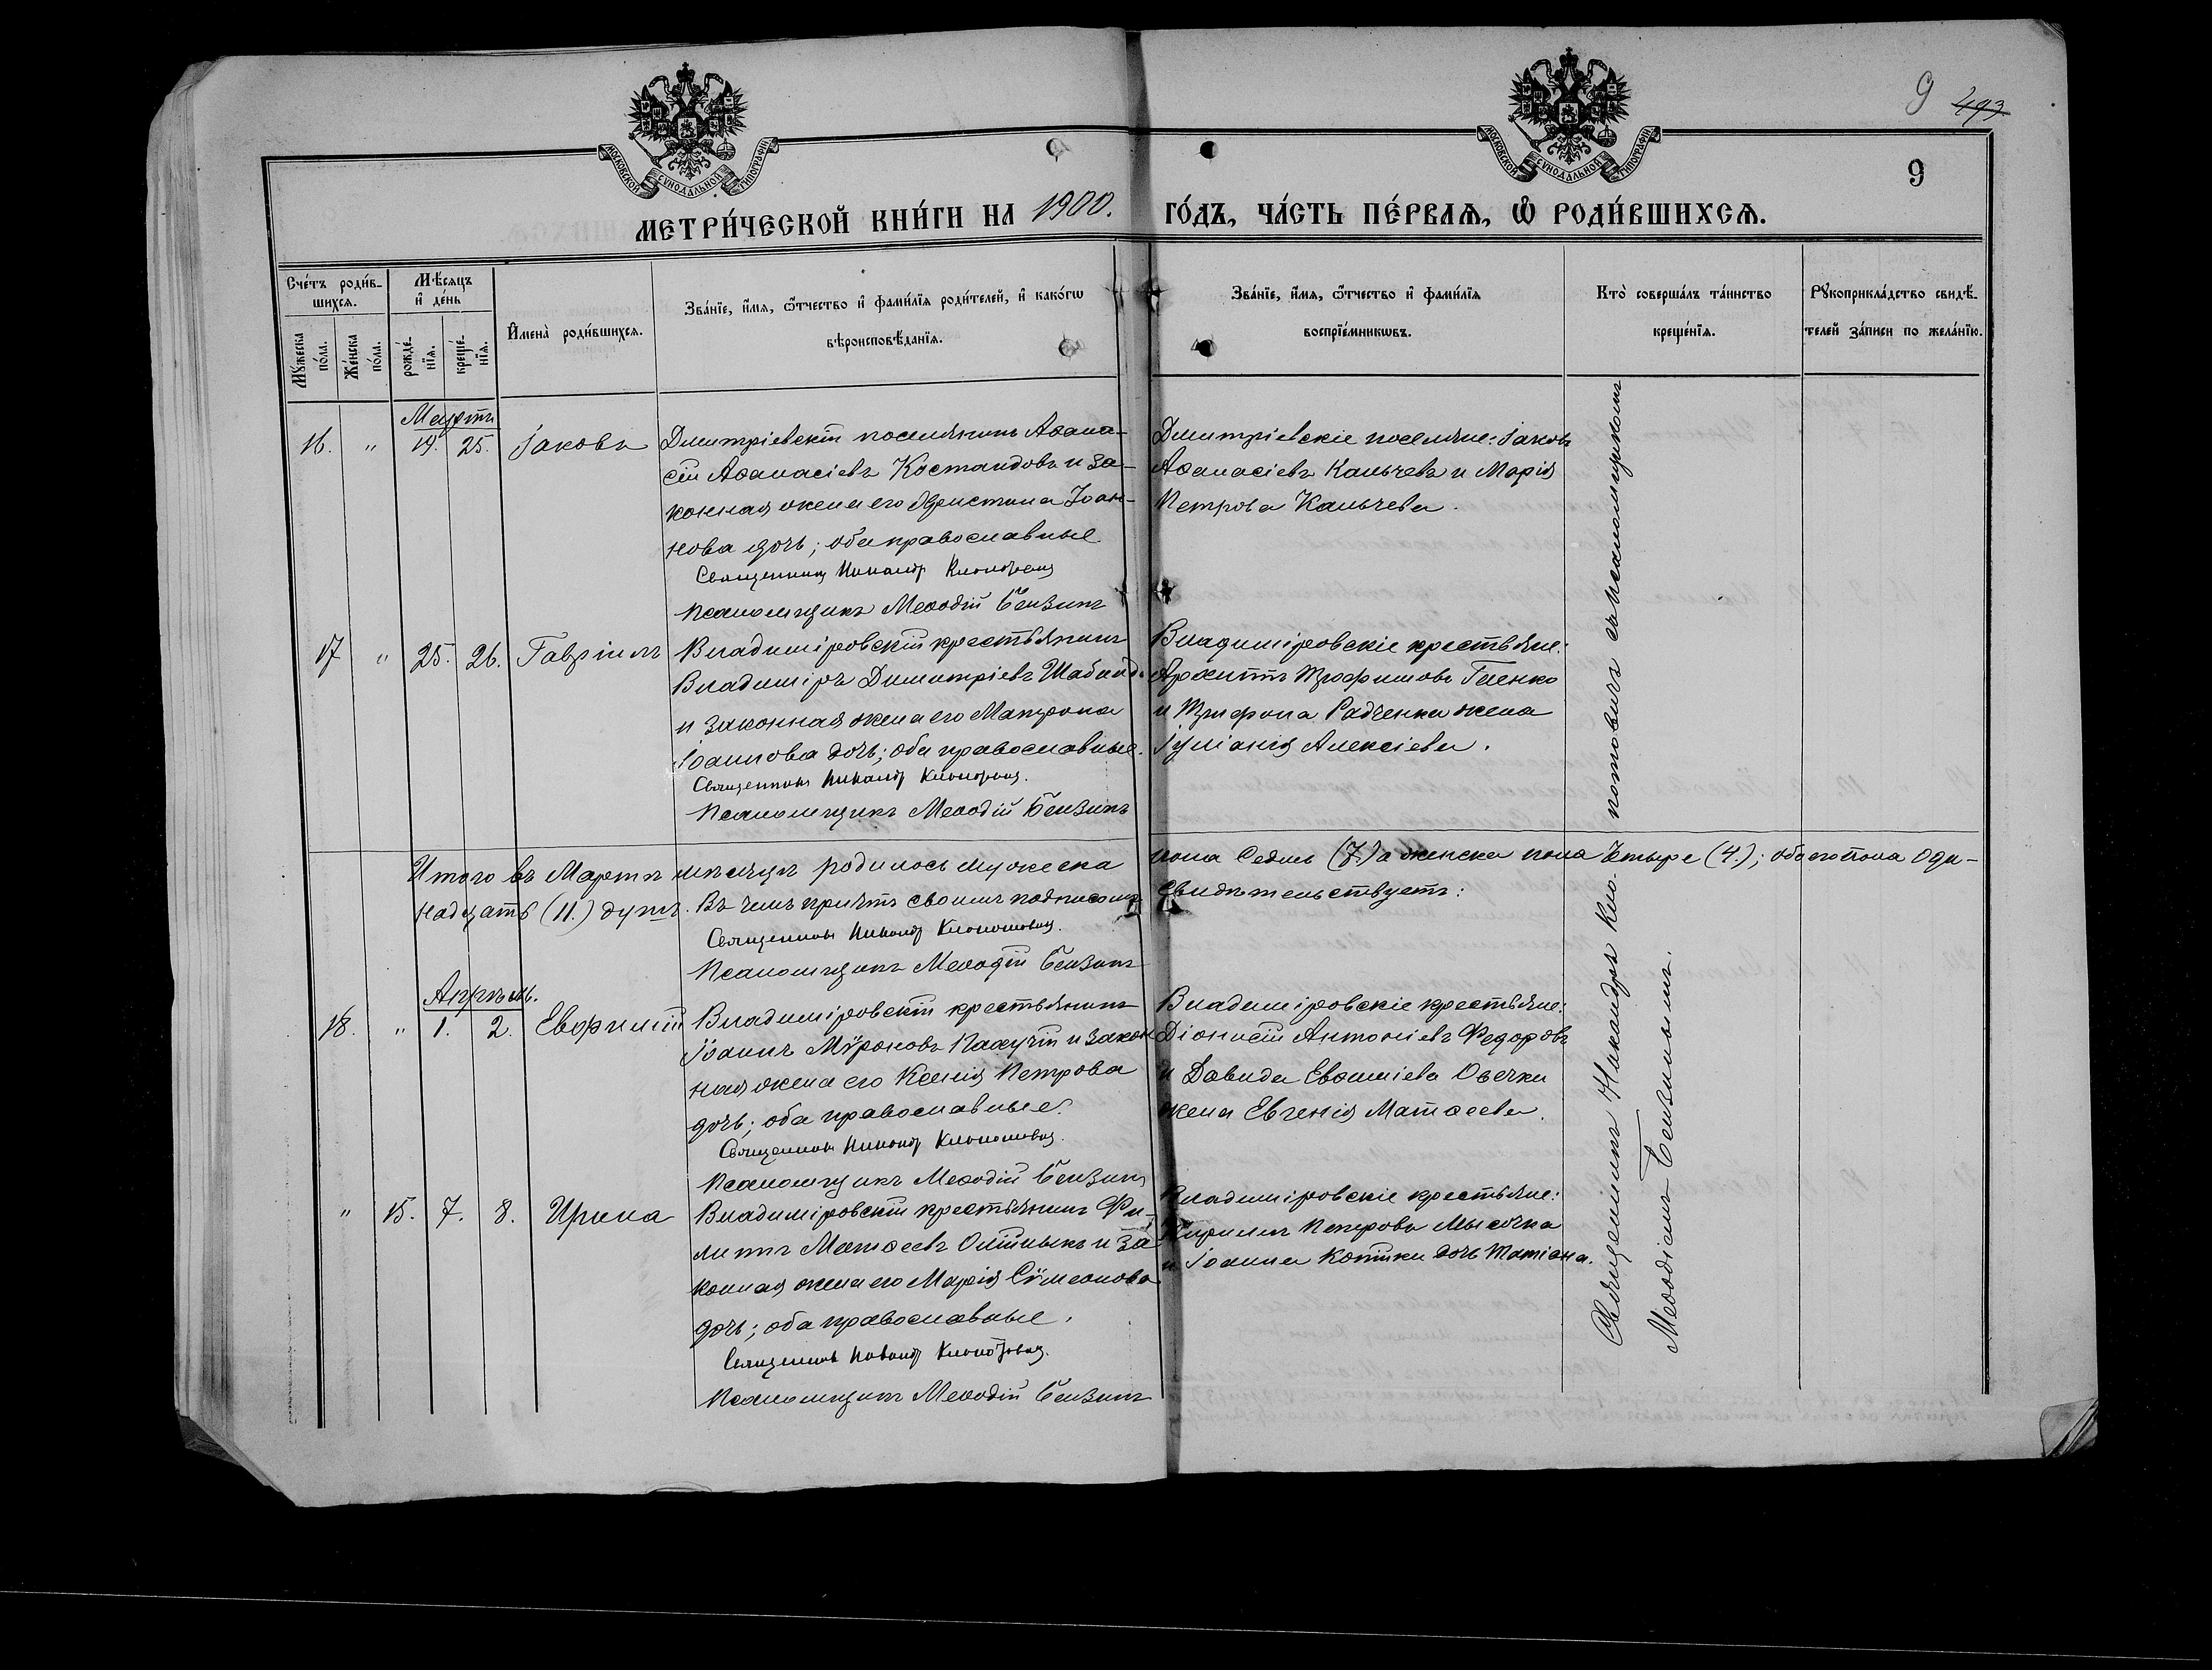 9 493
9
МОСКОВСКОЙ СѴНОДАЛЬНОЙ ТИПОГРАФІИ
МОСКОВСКОЙ СѴНОДАЛЬНОЙ ТИПОГРАФІИ
МЕТРИ́ЧЕСКОЙ КНИ́ГИ НА 1900. ГО́ДЪ, ЧА́СТЬ ПЕ́РВАѦ, Ѡ҆ РОДИ́ВШИХСѦ.
Сче́тъ роди́в-
шихсѧ.
Мꙋ́жеска по́ла.
Же́нска по́ла.
Мѣ́сѧцъ
и҆ де́нь
рожде́-
нїѧ.
креще́-
нїѧ.
И҆мена̀ роди́вшихсѧ.
Зва́нїе, и҆́мѧ, ѻ҆́тчество и҆ фами́лїѧ роди́телей, и҆ како́гѡ
вѣроисповѣ́данїѧ.
Зва́нїе, и҆́мѧ, ѻ҆́тчество и҆ фами́лїѧ
воспрїе́мникѡвъ.
Кто̀ соверша́лъ та́инство
креще́нїѧ.
Рꙋкоприкла́дство свидѣ́-
телей за́писи по жела́нїю.
Мартъ
16. " 14. 25. Іаковъ
Димитріевскій поселянинъ Аѳана-
сій Аѳанасіевъ Костандовъ и за-
конная жена его Христина Іоан-
нова дочь; оба православные.
Священникъ Никандр
Псаломщикъ Меѳодій Бензинъ
Димитріевскіе поселяне: Іаковъ
Аѳанасіевъ Кальчевъ и Марія
Петрова Кальчева.
17 " 25. 26. Гавріилъ
Владиміровскій крестьянинъ
Владиміръ Димитріевъ
и законная жена его Матрона
Іоаннова дочь; оба православные.
Священникъ Никандр
Псаломщикъ Меѳодій Бензинъ
Владиміровскіе крестьяне:
Трофимовъ Гиенко
и Трифона Радченка жена
Іуліанія Алексіева.
Итого въ Мартѣ мѣсяцѣ родилось мужеска пола седмь (7.) а женска пола четыре (4.); обоего пола оди-
надцать (11.) душъ. Въ чемъ причтъ своимъ подписомъ свидѣтельствуетъ:
Священникъ Никандр
Псаломщикъ Меѳодій Бензинъ
Апрѣль.
18. " 1. 2. Евѳимій
Владиміровскій крестьянинъ
Іоаннъ Мѵроновъ и закон-
ная жена его Ксенія Петрова
дочь; оба православные.
Священникъ Никандр
Псаломщикъ Меѳодій Бензинъ
Владиміровскіе крестьяне:
Діонисій Антоніевъ Федоровъ
и Давида Евѳиміева Овечки
жена Евгенія Матѳеева.
" 15. 7. 8. Ирина
Владиміровскій крестьянинъ Фи-
липпъ Матѳеевъ Олійныкъ и за-
конная жена его Марія Сѵмеонова
дочь; оба православные.
Священникъ Никандр
Псаломщикъ Меѳодій Бензинъ
Владиміровскіе крестьяне:
Кириллъ Петровъ
и Іоанна Котика дочь Татіана.
Священникъ Никандръ Кло- съ псаломщикомъ
Меѳодіемъ Бензинымъ.